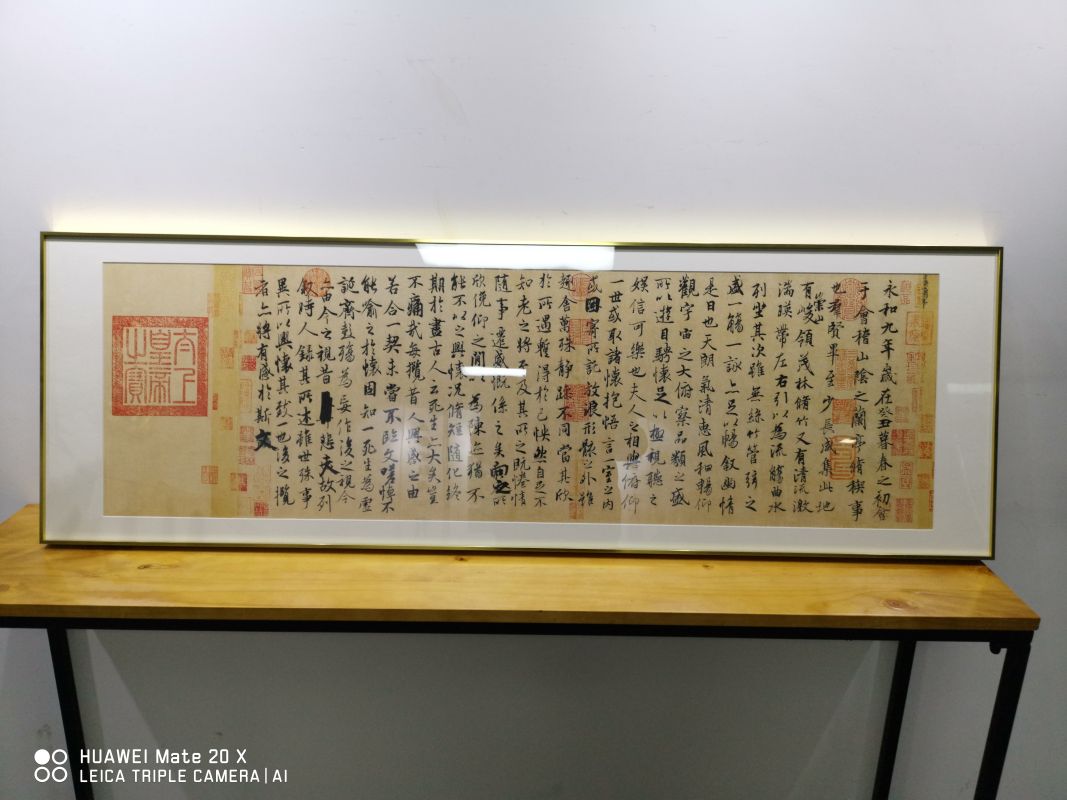 永和九年歲在癸丑暮春之初會
于會稽山陰之蘭亭脩稧事
也羣賢畢至少長咸集此地
有崇山峻領茂林脩竹又有清流激
湍暎帶左右引以為流觴曲水
列坐其次雖無絲竹管弦之
盛一觴一詠亦足以暢叙幽情
是日也天朗氣清惠風和暢仰
觀宇宙之大俯察品類之盛
所以遊目騁懷足以極視聽之
娛信可樂也夫人之相與俯仰
一世或取諸懷抱悟言一室之內
或因寄所託放浪形骸之外雖
趣舍萬殊靜躁不同當其欣
於所遇蹔得於己怏然自足不
知老之將至及其所之既惓情
隨事遷感慨係之矣向之所
欣俛仰之間以為陳迹猶不
能不以之興懷況脩短隨化終
期於盡古人云死生亦大矣豈
不痛哉每攬昔人興感之由
若合一契未嘗不臨文嗟悼不
能喻之於懷固知一死生為虛
誕齊彭殤為妄作後之視今
亦由今之視昔悲夫故列
叙時人錄其所述雖世殊事
異所以興懷其致一也後之攬
者亦將有感於斯文
太上皇帝之寶
HUAWEI Mate 20 X
LEICA TRIPLE CAMERA | AI